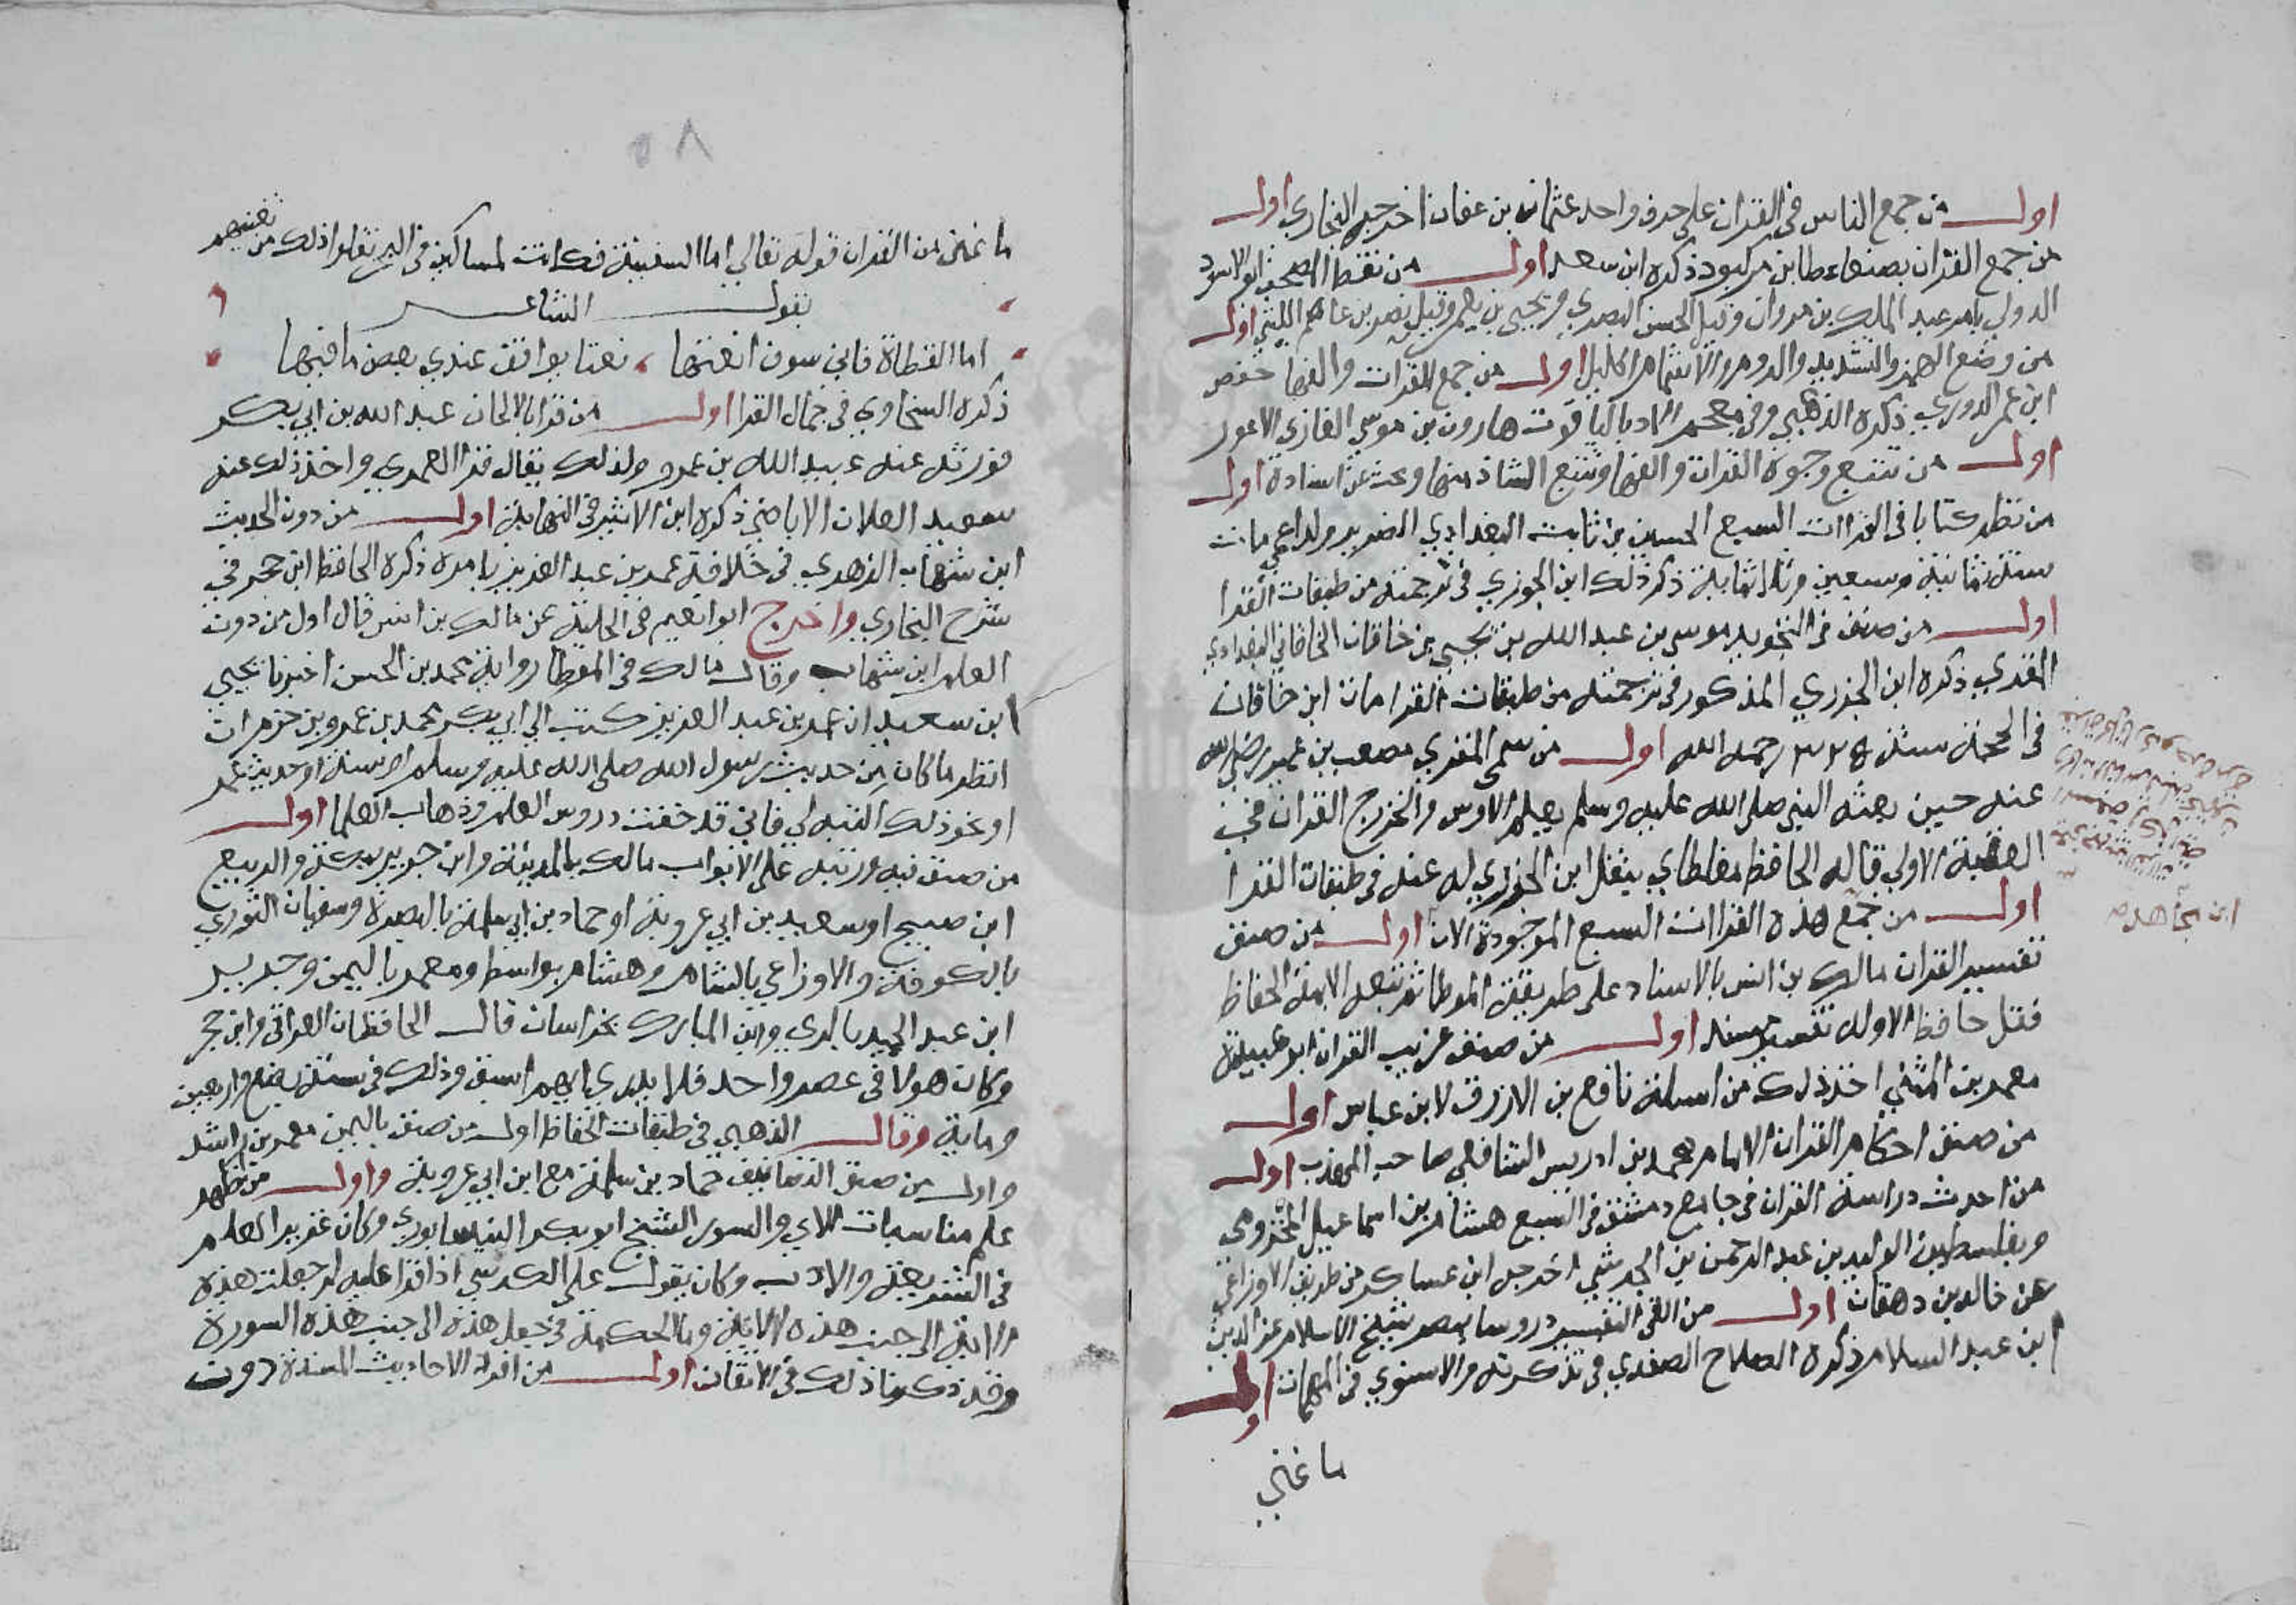 اول من جمع الناس في القران على حرف واحد عثمان بن عفان اخرجه البخاري اول
من جمع القران بصنعاء عطا بن مركبود ذكره ابن سعد اول من نقط المصحف ابو الاسود
الدولي بامر عبد الملك بن مروان وقيل الحسن البصري ويحيى بن يعمر وقيل نصر بن عاصم الليثي اول
من وضع الهمز والتشديد والروم والاشمام الخليل اول من جمع القرات والفها حفص
ابن عمر الدوري ذكره الذهبي وفي معجم الادبا لياقوت هارون بن موسى القازي الاعور
اول من تتبع وجوه القران والفها وتتبع الشاذ منها وبحث عن اسناده اول
من نظم كتابا في القراات السبع الحسين بن ثابت البغدادي الضرير ولد اعمى مات
سنة ثمانية وسبعين وثلاثماية ذكر ذلك ابن الجوزي في ترجمته من طبقات القرا
اول من صنف في التجويد موسى بن عبد الله بن يحيى بن خاقان الخاقاني البغدادي
المقري ذكره ابن الجزري المذكور في ترجمته من طبقات القرا مات ابن خاقان
في الحجة سنة ٣٢٥ رحمه الله اول من سمى المقري مصعب بن عمير رضي الله
عنه حين بعثه النبي صلى الله عليه وسلم يعلم الاوس والخزرج القران في
العقبة الاولى قاله الحافظ مغلطاي ينقل ابن الجزري له عنه في طبقات القرا
اول من جمع هذه القراات السبع الموجودة الان اول من صنف
ابن مجاهد
تفسير القران مالك بن انس بالاسناد على طريقة الموطا ثم تبعه الايمة الحفاظ
فقل حافظ الا وله تفسير مسند اول من صنف غريب القران ابو عبيدة
معمر بن المثنى اخذ ذلك من اسيلة نافع بن الازرق لابن عباس اول
من صنف احكام القران الامام محمد بن ادريس الشافعي صاحب المذهب اول
من احدث دراسة القران في جامع دمشق في السبع هشام بن اسماعيل المخزومي
وبفلسطين الوليد بن عبد الرحمن بن الجرشي اخرجه ابن عساكر من طريق الاوزاعي
عن خالد بن دهقان اول من القى التفسير دروسا بمصر شيخ الاسلام عز الدين
ابن عبد السلام ذكره الصلاح الصفدي في تذكرته والاسنوي في المهمات اول
ما غني
٥٨
ما غني من القران قوله تعالى اما السفينة فكانت لمساكين في البحر نقلوا ذلك من تغنيهم
بقول الشاعر
اما القطاة فاني سوف انعتها نعتا يوافق عندي بعض ما فيها
ذكره السخاوي في جمال القرا اول من قرا بالالحان عبد الله بن ابي بكر
فورثه عنه عبيد الله بن عمر ولذلك يقال قرا العمري واخذ ذلك عنه
سعيد العلاف الاباضي ذكره ابن الاثير في النهاية اول من دون الحديث
ابن شهاب الزهري في خلافة عمر بن عبد العزيز بامره ذكره الحافظ ابن حجر في
شرح البخاري واخرج ابو نعيم في الحلية عن مالك بن انس قال اول من دون
العلم ابن شهاب وقال مالك في الموطا رواية محمد بن الحسن اخبرنا يحيى
ابن سعيد ان عمر بن عبد العزيز كتب الى ابي بكر محمد بن عمرو بن حزم ان
انظر ما كان من حديث رسول الله صلى الله عليه وسلم او سنة او حديث عمر
او نحو ذلك اكتبه لي فاني قد خفت دروس العلم وذهاب العلما اول
من صنف فيه ورتبه على الابواب مالك بالمدينة وابن جريج بمكة والربيع
ابن صبيح او سعيد بن ابي عروبة او حماد بن ابي سلمة بالبصرة وسفيان الثوري
بالكوفة والاوزاعي بالشام وهشام بواسط ومعمر باليمن وجرير
ابن عبد الحميد بالري وابن المبارك بخراسان قال الحافظان العراقي وابن حجر
وكان هولا في عصر واحد فلا يدري ايهم اسبق وذلك في سنة بضع واربعين
وماية وقال الذهبي في طبقات الحفاظ اول من صنف باليمن معمر بن راشد
واول من صنف التصانيف حماد بن سلمة مع ابن ابي عروبة واول من اظهر
علم مناسبات الاي والسور الشيخ ابو بكر النيسابوري وكان غزير العلم
في الشريعة والادب وكان يقول على الكرسي اذا قرا عليه لم جعلت هذه
الاية الى جنب هذه الاية وما الحكمة في جعل هذه الى جنب هذه السورة
وقد ذكرنا ذلك في الاتقان اول من افرد الاحاديث المسندة دون